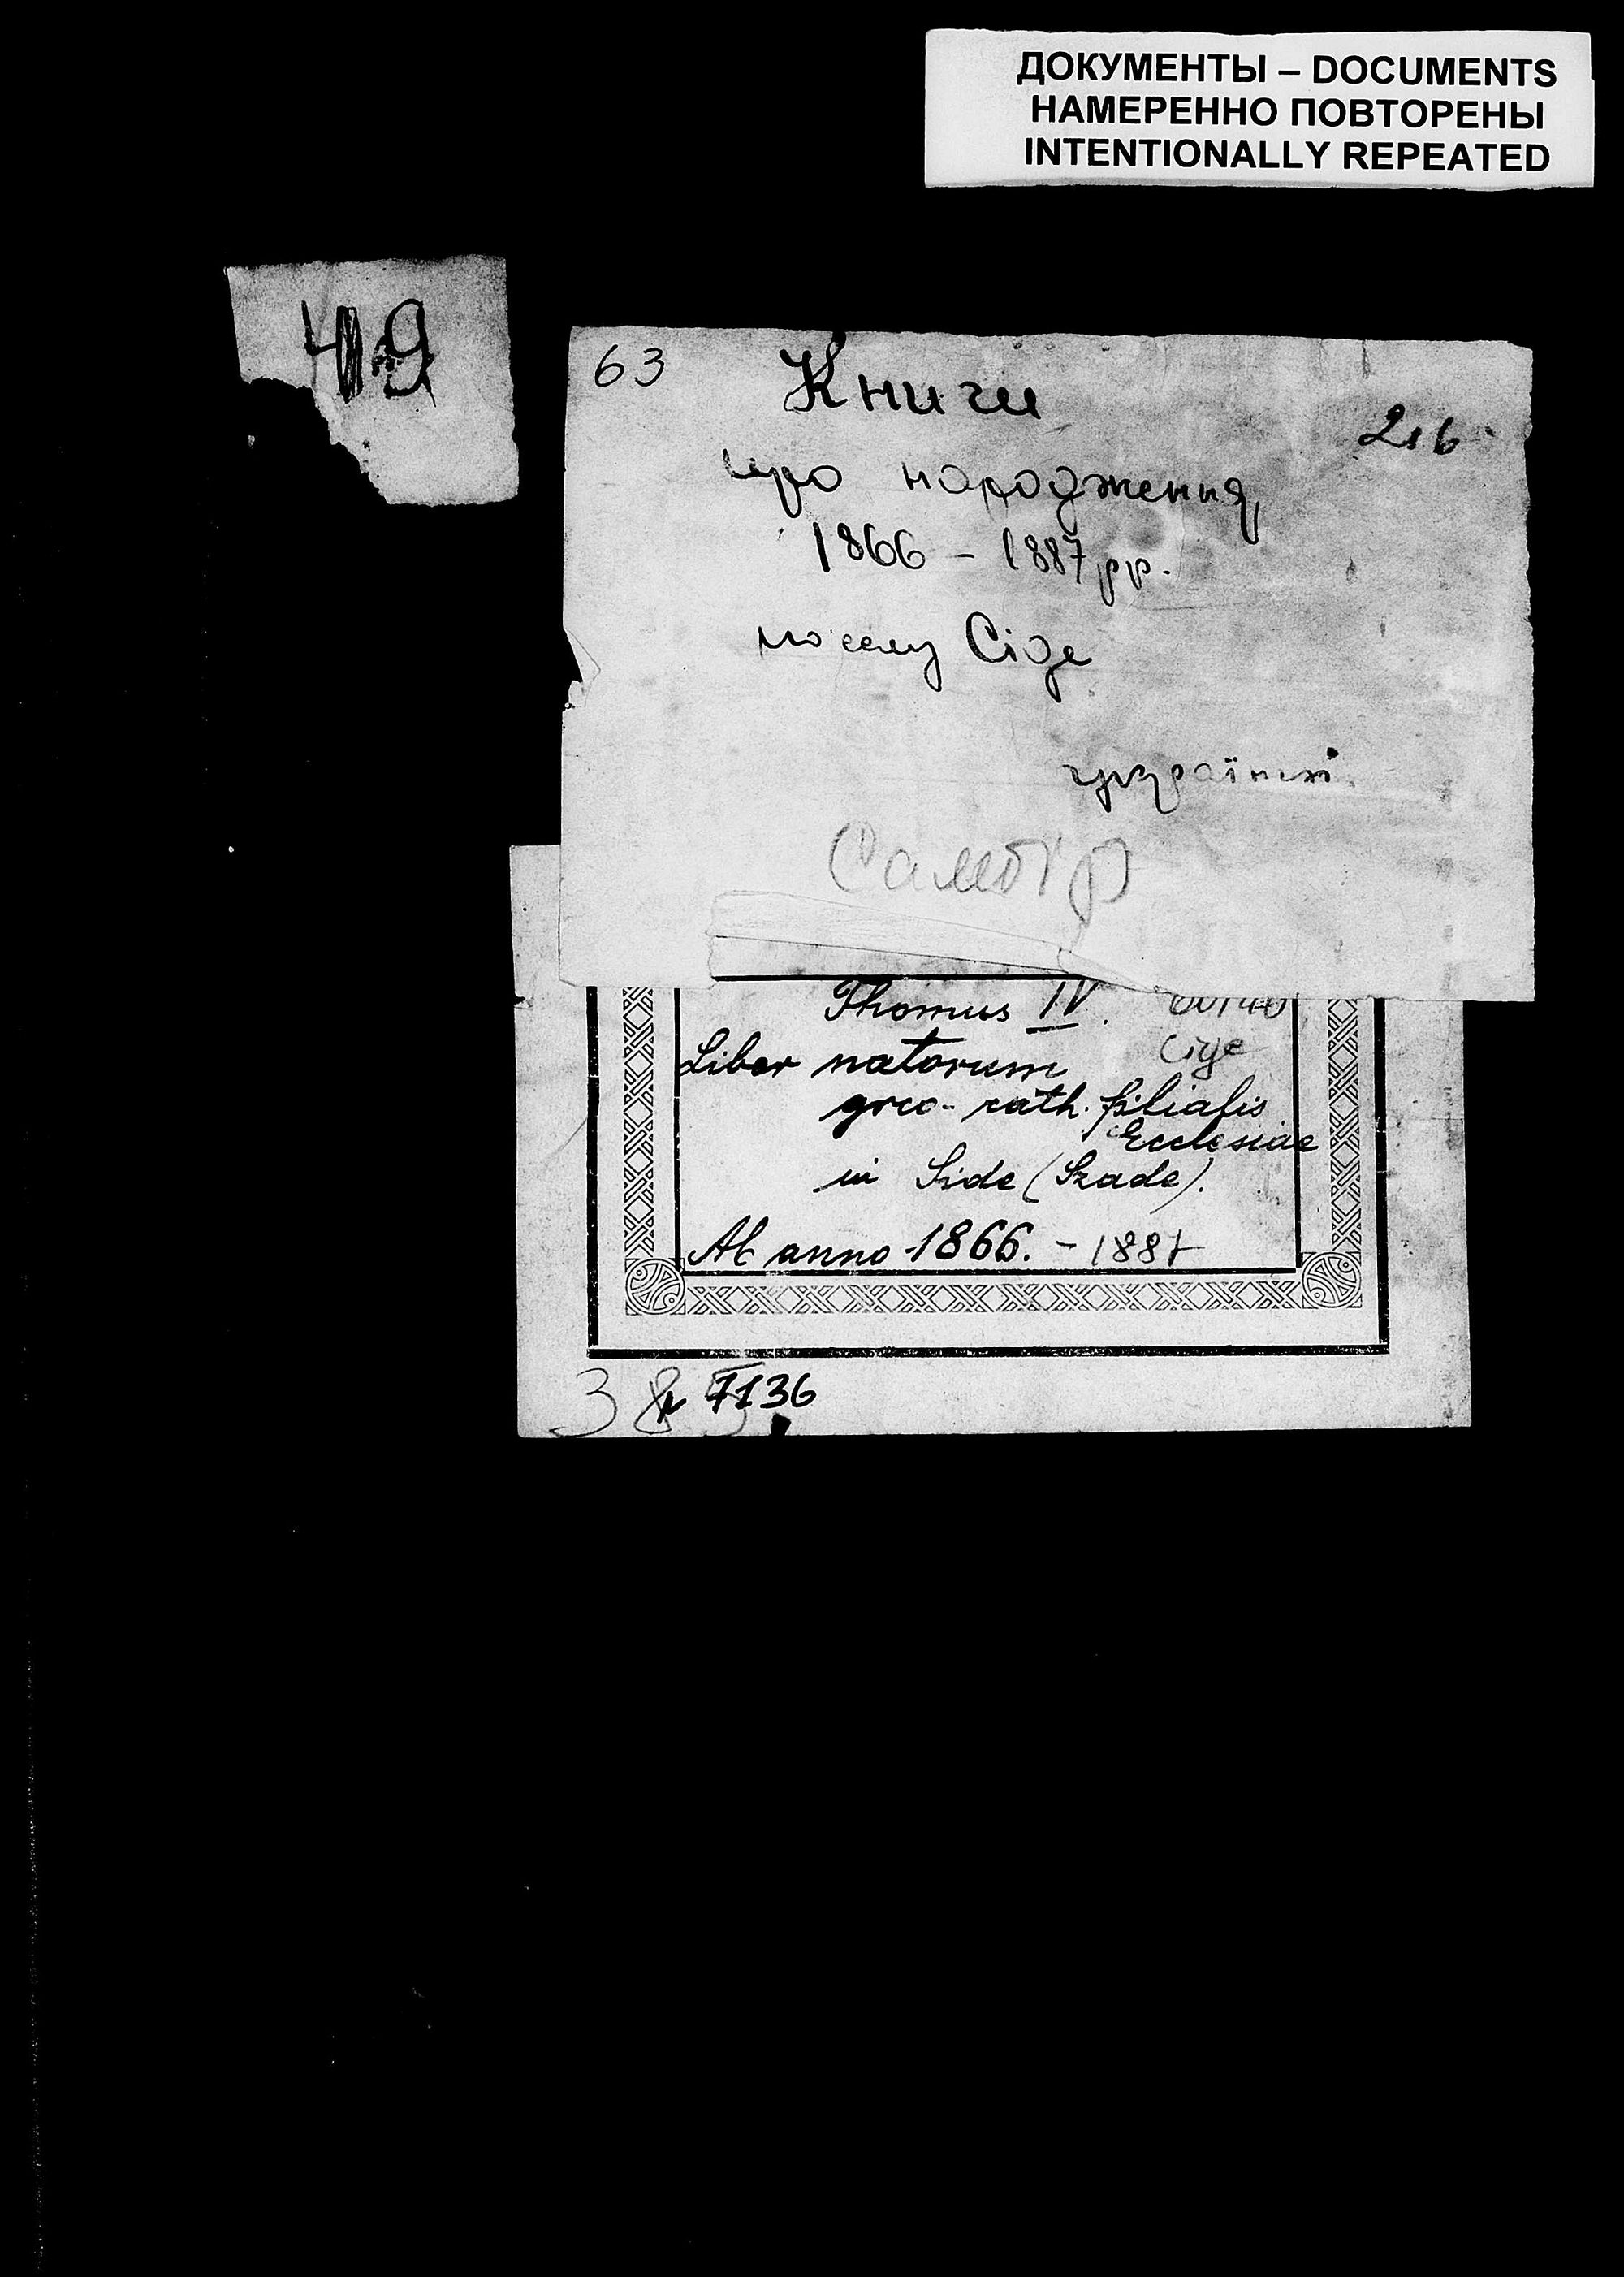 ДОКУМЕНТЫ – DOCUMENTS
НАМЕРЕННО ПОВТОРЕНЫ
INTENTIONALLY REPEATED
63
Книги
2.6
про народження
1866 – 1887 рр.
по селу Сіде
Самбір
Thomus IV.
Liber natorum
greco-cath. filialis
Ecclesiae
in Side (Szade).
Ab anno 1866. – 1887
7136